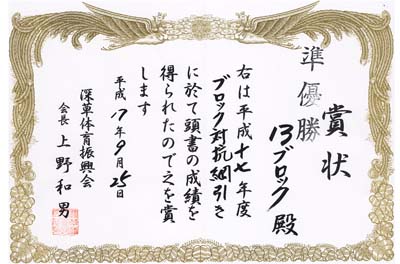 賞状
準優勝
13ブロック殿
右は平成十七年度
ブロック対抗綱引き
に於て頭書の成績を
得られたので之を賞
します
平成17年9月25日
深草体育振興会
会長 上野和男